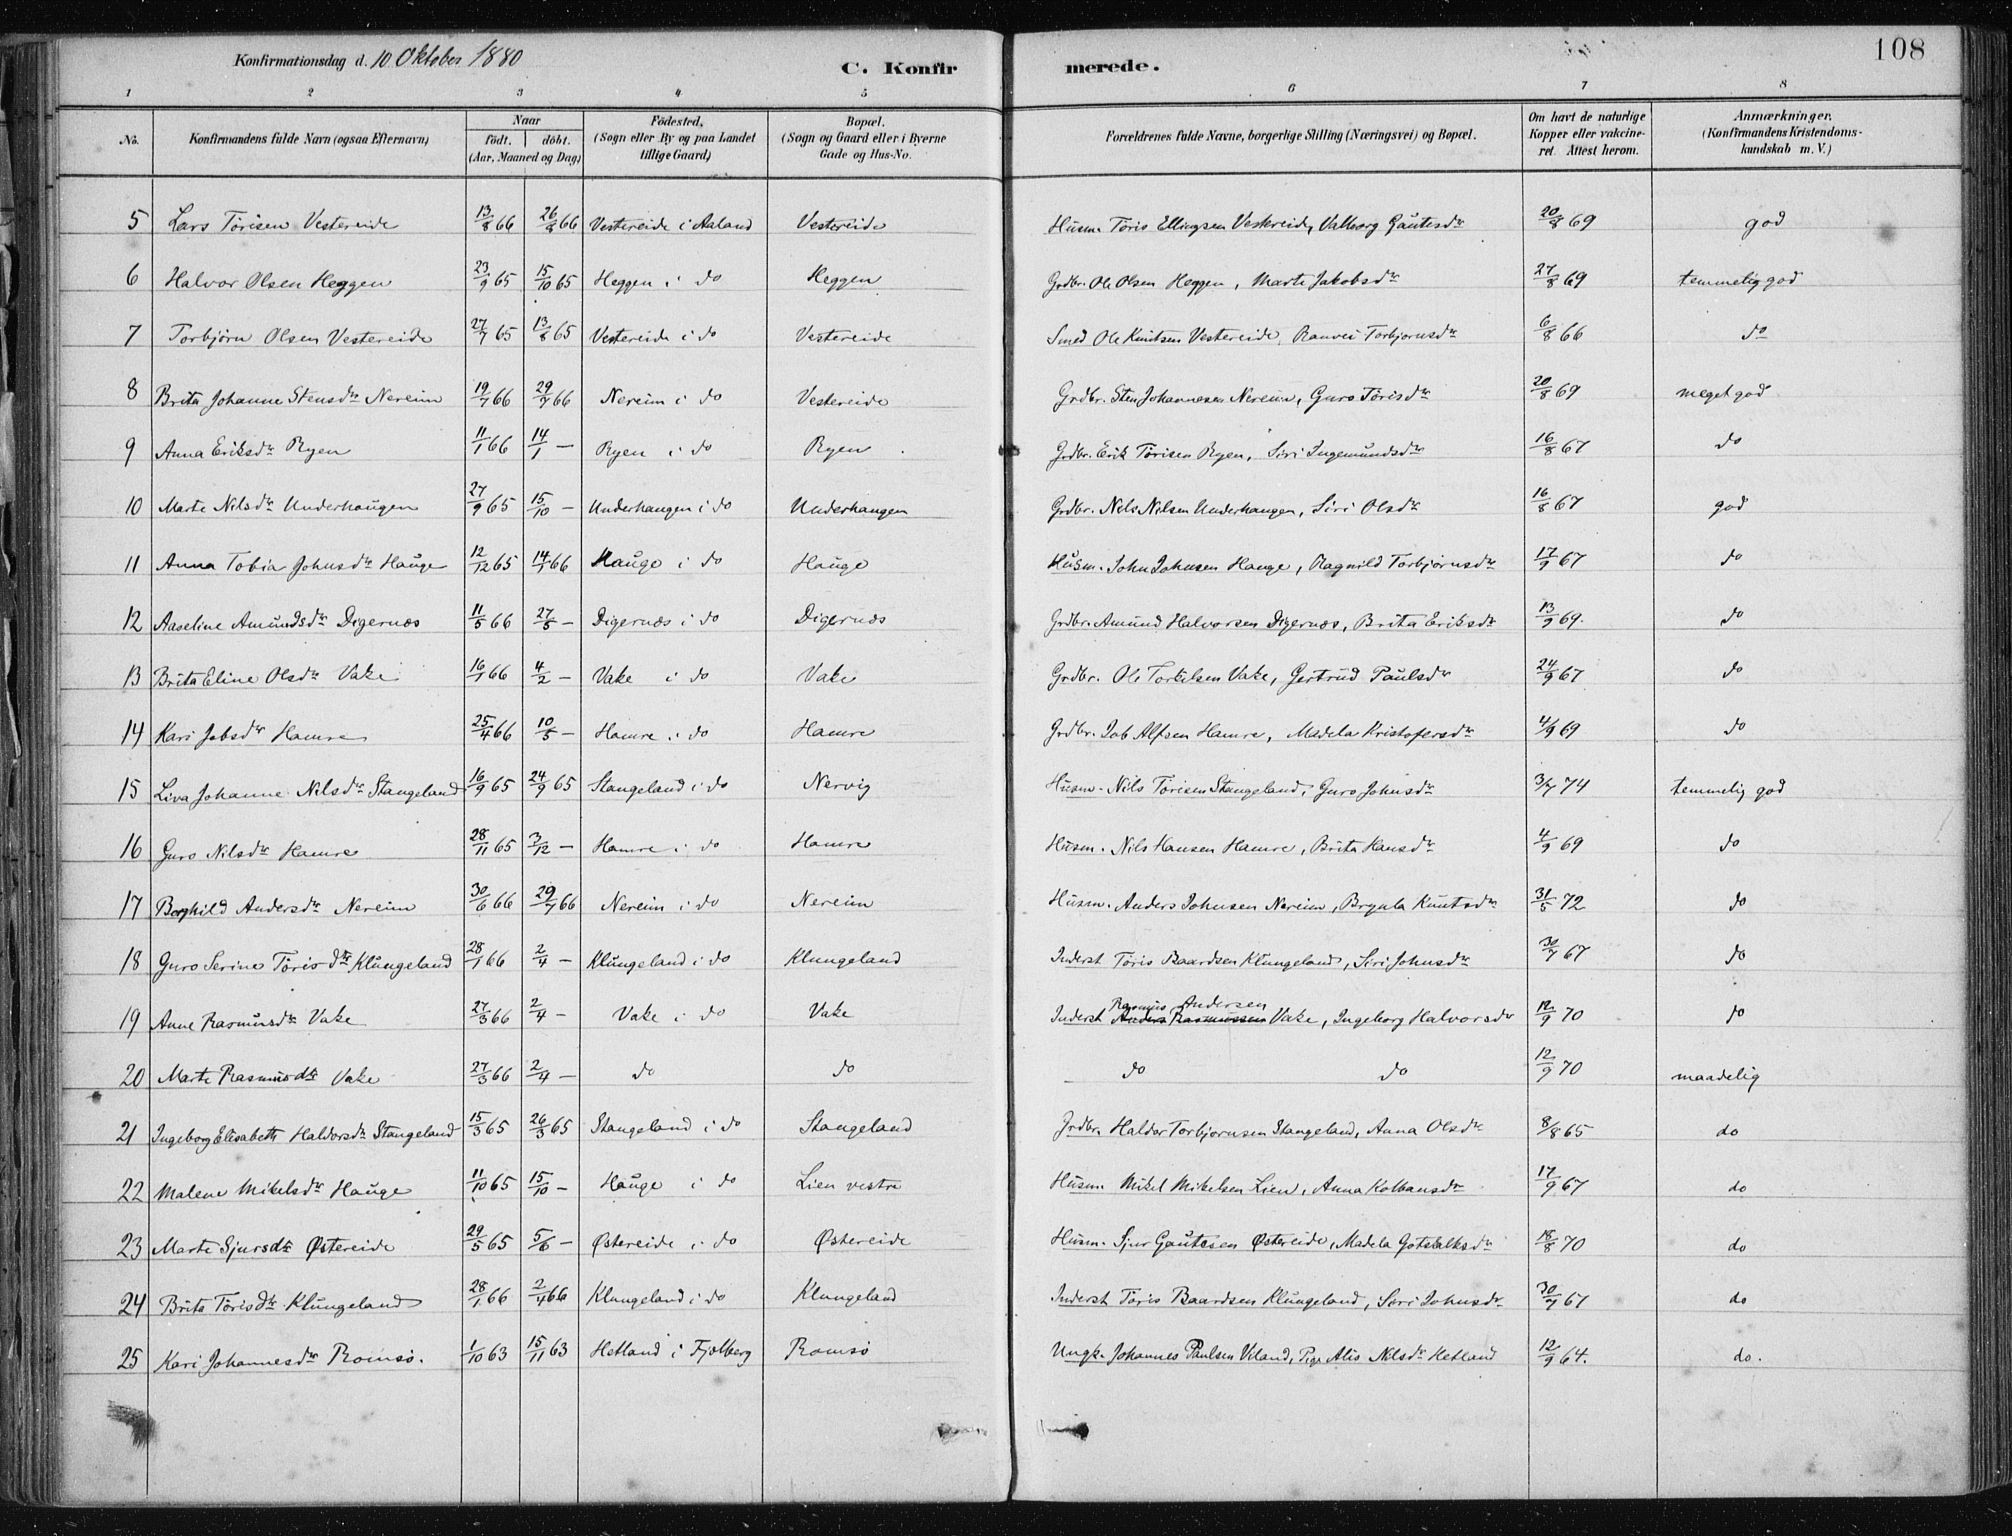 Konfirmationsdag d. 10 Oktober 1880 C. Konfirmerede. 108
1 2 3 4 5 6 7 8
No. Konfirmandens fulde Navn (ogsaa Efternavn) Naar født. døbt. (Aar, Maaned og Dag) Fødested, (Sogn eller By og paa Landet tillige Gaard) Bopæl. (Sogn og Gaard eller i Byerne Gade og Hus-No. Forældrenes fulde Navne, borgerlige Stilling (Næringsvei) og Bopæl. Om havt de naturlige Kopper eller vakcineret. Attest herom. Anmærkninger. (Konfirmandens Kristendomskundskab m. V.)
5 Lars Tørisen Vestereide 13/8 66 26/8 66 Vestereide i Aaland Vestereide Husm. Tøris Ellingsen Vestereide, Valborg Gautesdr 20/8 69 god
6 Halvor Olsen Heggen 23/9 65 15/10 65 Heggen i do Heggen Grdbr. Ole Olsen Heggen, Marte Jakobsdr 27/8 69 temmelig god
7 Torbjørn Olsen Vestereide 27/7 65 13/8 65 Vestereide i do Vestereide Smed Ole Knutsen Vestereide, Ranvei Torbjørnsdr 6/8 66 do
8 Brita Johanne Stensdr Nereim 19/7 66 29/7 66 Nereim i do Vestereide Grdbr. Sten Johannesen Nereim, Guro Tørisdr 20/8 69 meget god
9 Anna Eriksdr Ryen 11/1 66 14/1 — Ryen i do Ryen Grdbr. Erik Tørisen Ryen, Siri Ingemundsdr 16/8 67 do
10 Marte Nilsdr Underhaugen 27/9 65 15/10 — Underhaugen i do Underhaugen Grdbr. Nils Nilsen Underhaugen, Siri Olsdr 16/8 67 god
11 Anna Tobia Johnsdr Hauge 12/12 65 14/1 66 Hauge i do Hauge Husm. John Johnsen Hauge, Ragnild Torbjørnsdr 17/9 67 do
12 Aaseline Amundsdr Digernæs 11/5 66 27/5 — Digernæs i do Digernæs Grdbr. Amund Halvorsen Digernæs, Brita Eriksdr 13/9 69. do
13 Brita Eline Olsdr Vake 16/1 66 4/2 — Vake i do Vake Grdbr. Ole Torkelsen Vake, Gertrud Paulsdr 24/9 67 do
14 Kari Jobsdr Hamre 25/4 66 10/5 — Hamre i do Hamre Grdbr. Job Alfsen Hamre, Madela Kristofersdr 4/9 69 do
15 Liva Johanne Nilsdr Stangeland 16/9 65 24/9 65 Stangeland i do Nervig Husm. Nils Tørisen Stangeland, Guro Johnsdr 3/7 74 temmelig god
16 Guro Nilsdr Hamre 28/11 65 3/12 — Hamre i do Hamre Husm. Nils Hansen Hamre, Brita Hansdr 4/9 69 do
17 Borghild Andersdr Nereim 30/6 66 29/7 66 Nereim i do Nereim Husm. Anders Johnsen Nereim, Brynla Knutsdr 31/5 72 do
18 Guro Serine Tørisdtr Klungeland 28/1 66 2/4 — Klungeland i do Klungeland Inderst Tøris Baardsen Klungeland, Siri Johnsdr 30/7 67 do
19 Anne Rasmusdtr Vake 27/3 66 2/4 — Vake i do Vake Inderst Rasmus Andersen Anders Rasmussen Vake, Ingeborg Halvorsdr 12/9 70 do
20 Marte Rasmusdtr Vake 27/3 66 2/4 — do do do do 12/9 70 maadelig
21 Ingeborg Elisabeth Haldorsdr Stangeland 15/3 65 26/3 65 Stangeland i do Stangeland Grdbr. Haldor Torbjørnsen Stangeland, Anna Olsdr 8/8 65 do
22 Malene Mikelsdr Hauge 11/10 65 15/10 — Hauge i do Lien vestre Husm Mikel Mikelsen Lien, Anna Kolbansdr 17/9 67 do
23 Marte Sjursdtr Østereide 29/5 65 5/6 — Østereide i do Østereide Husm. Sjur Gautesen Østereide, Madela Gotskalksdr 18/8 70 do
24 Brita Tørisdtr Klungeland 28/1 66 2/4 66 Klungeland i do Klungeland Inderst Tøris Baardsen Klungeland, Siri Johnsdr 30/7 67 do
25 Kari Johannesdr Romsø. 1/10 63 15/11 63 Hetland i Fjelberg Romsø Ungk. Johannes Paulsen Viland, Pige Alis Nilsdr Hetland 12/9 64. do.